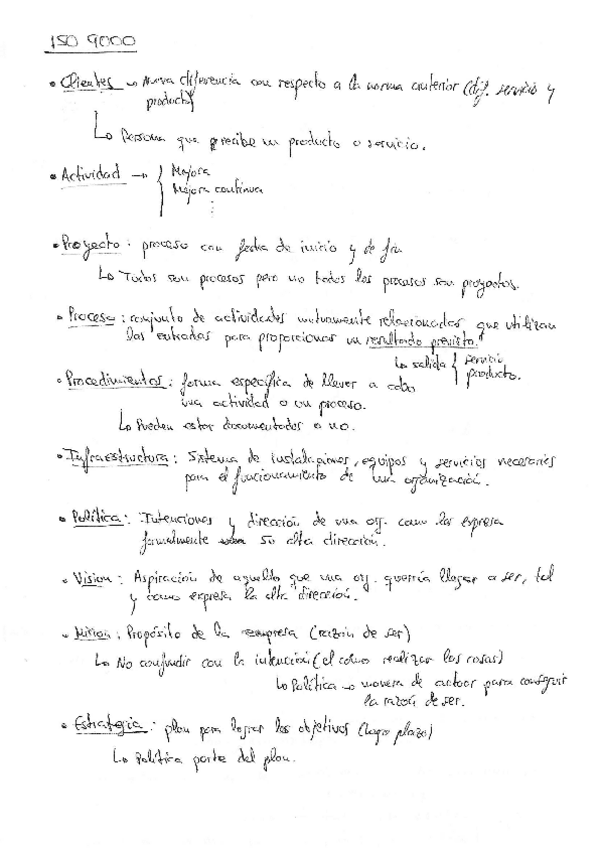 ISO 9000
• Clientes → Nueva diferencia con respecto a la norma anterior (dif. servicio y
producto)
↳ Persona que recibe un producto o servicio.
• Actividad → { Mejora
Mejora continua
⋮
• Proyecto: proceso con fecha de inicio y de fin
↳ Todos son procesos pero no todos los procesos son proyectos.
• Proceso: conjunto de actividades mutuamente relacionadas que utilizan
las entradas para proporcionar un resultado previsto.
↳ salida { servicio
producto.
• Procedimientos: forma específica de llevar a cabo
una actividad o un proceso.
↳ Pueden estar documentados o no.
• Infraestructura: Sistema de instalaciones, equipos y servicios necesarios
para el funcionamiento de una organización.
• Política: Intenciones y dirección de una org. como las expresa
formalmente su alta dirección.
• Visión: Aspiración de aquello que una org. querría llegar a ser, tal
y como expresa la alta dirección.
• Misión: Propósito de la empresa (razón de ser)
↳ No confundir con la intención (el cómo realizar las cosas)
↳ Política → manera de actuar para conseguir
la razón de ser.
• Estrategia: plan para lograr los objetivos (largo plazo)
↳ Política parte del plan.